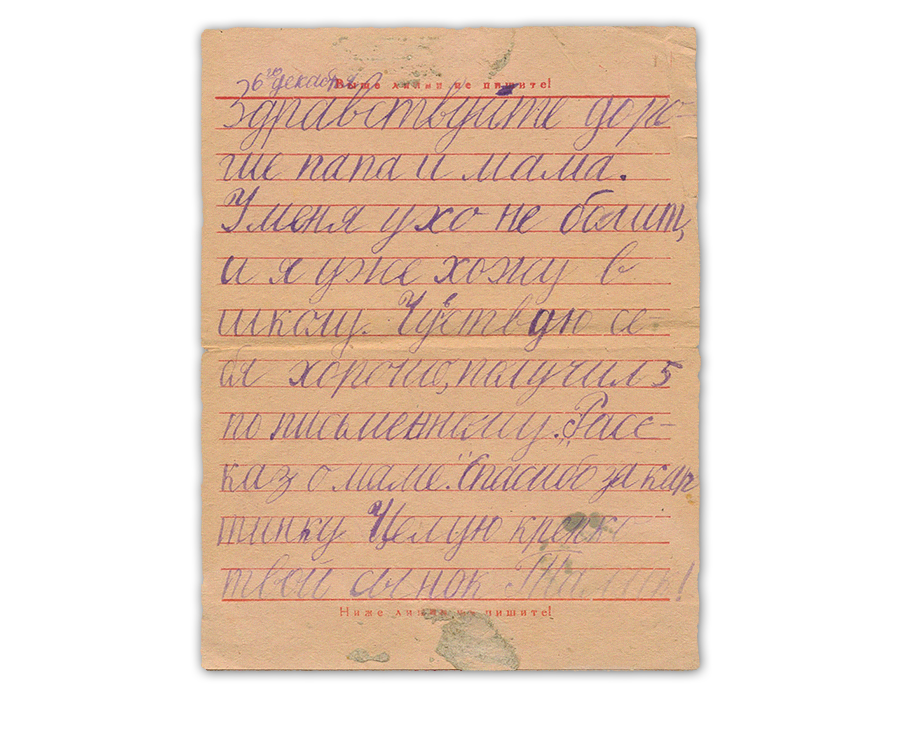 26го декабря
Выше линии не пишите!
Здравствуйте доро-
гие папа и мама.
У меня ухо не болит,
и я уже хожу в
школу. Чувствую се-
бя хорошо, получил 5
по письменному. "Расс-
каз о маме". Спасибо за кар
тинку Целую крепко
твой сынок
Ниже линии не пишите!